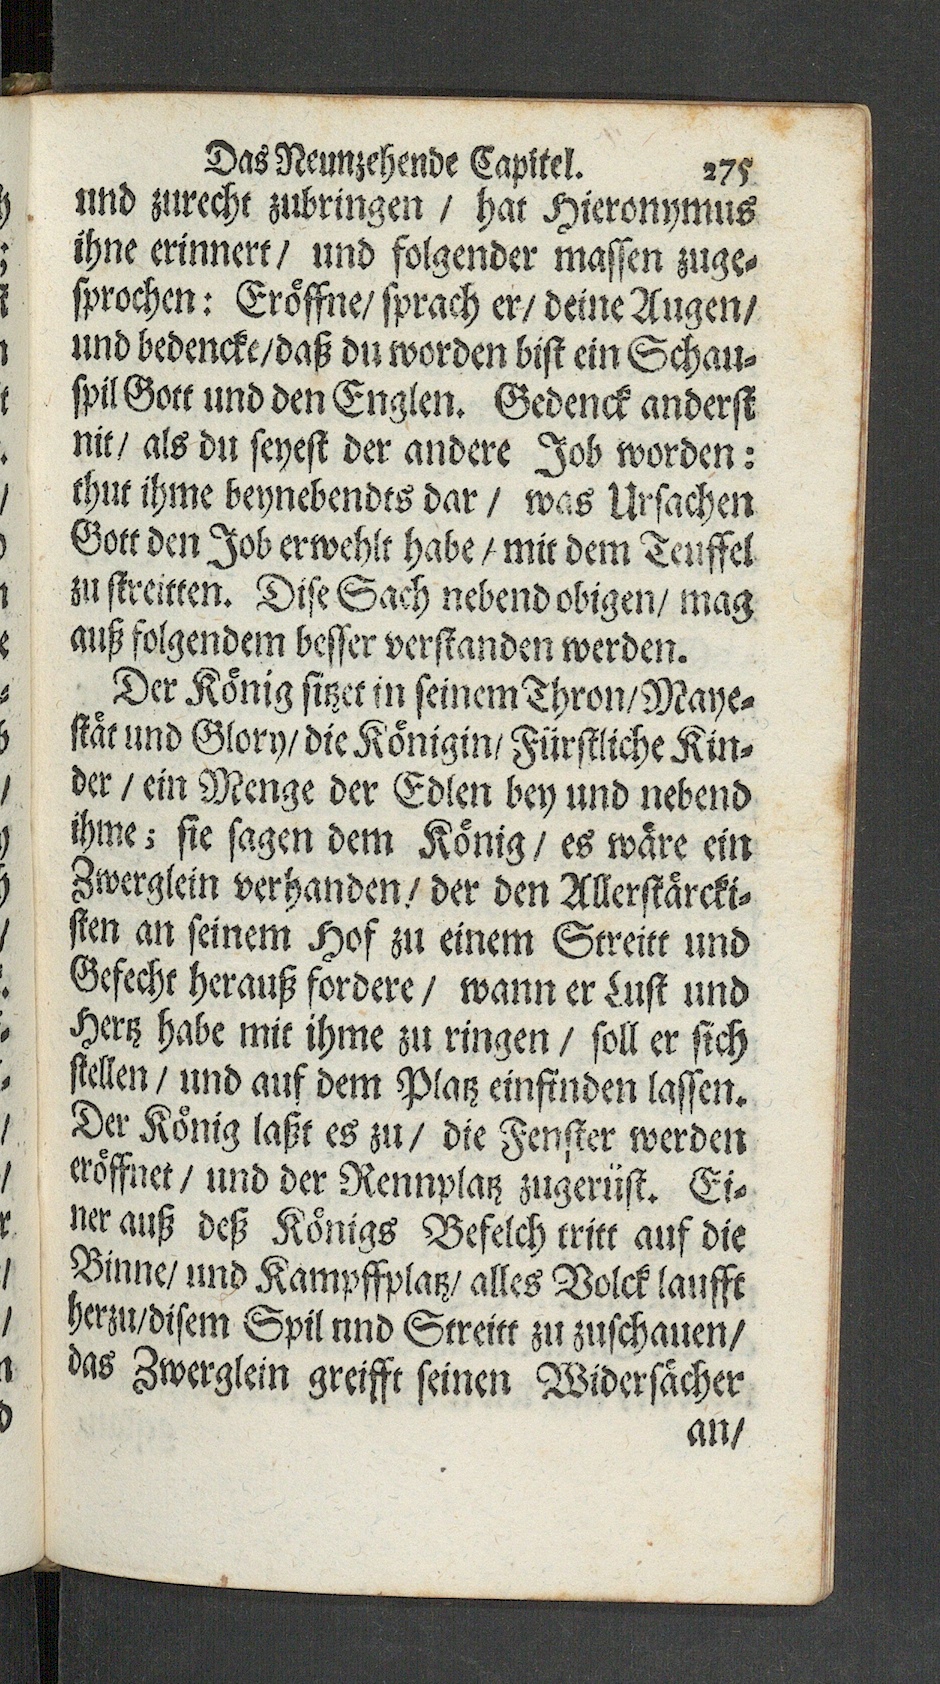 Das Neunzehende Capitel. 275
und zurecht zubringen / hat Hieronymus
ihne erinnert / und folgender massen zuge-
sprochen: Eröffne / sprach er / deine Augen /
und bedencke / daß du worden bist ein Schau-
spil Gott und den Englen. Gedenck anderst
nit / als du seyest der andere Job worden:
thut ihme beynebendts dar / was Ursachen
Gott den Job erwehlt habe / mit dem Teuffel
zu streitten. Dise Sach nebend obigen / mag
auß folgendem besser verstanden werden.
Der König sitzet in seinem Thron / Maye-
stät und Glory / die Königin / Fürstliche Kin-
der / ein Menge der Edlen bey und nebend
ihme; sie sagen dem König / es wäre ein
Zwerglein verhanden / der den Allerstärcki-
sten an seinem Hof zu einem Streitt und
Gefecht herauß fordere / wann er Lust und
Hertz habe mit ihme zu ringen / soll er sich
stellen / und auf dem Platz einfinden lassen.
Der König laßt es zu / die Fenster werden
eröffnet / und der Rennplatz zugerüst. Ei-
ner auß deß Königs Befelch tritt auf die
Binne / und Kampffplatz / alles Volck laufft
herzu / disem Spil nnd Streitt zu zuschauen /
das Zwerglein greifft seinen Widersächer
an /